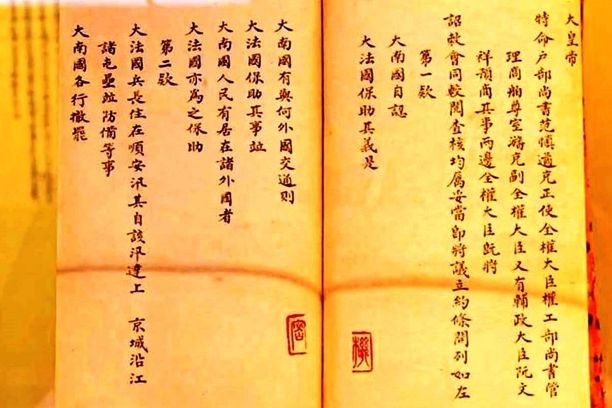 大皇帝
特命户部尚書范慎遹充正使全權大臣權工部尚書管
理商舶尊室濂充副全權大臣又有輔政大臣阮文
祥預商其事兩邊全權大臣既將
詔敕會同較閱查核均屬妥當卽將議立約條開列如左
第一欵
大南國自認
大法國保助其義是
大南國有與何外國交通則
大法國保助其事竝
大南國人民有居在諸外國者
大法國亦為之保助
第二欵
大法國兵長住在順安汛其自該汛達上 京城沿江
諸屯壘竝防備等事
大南國各行撤罷
機
密